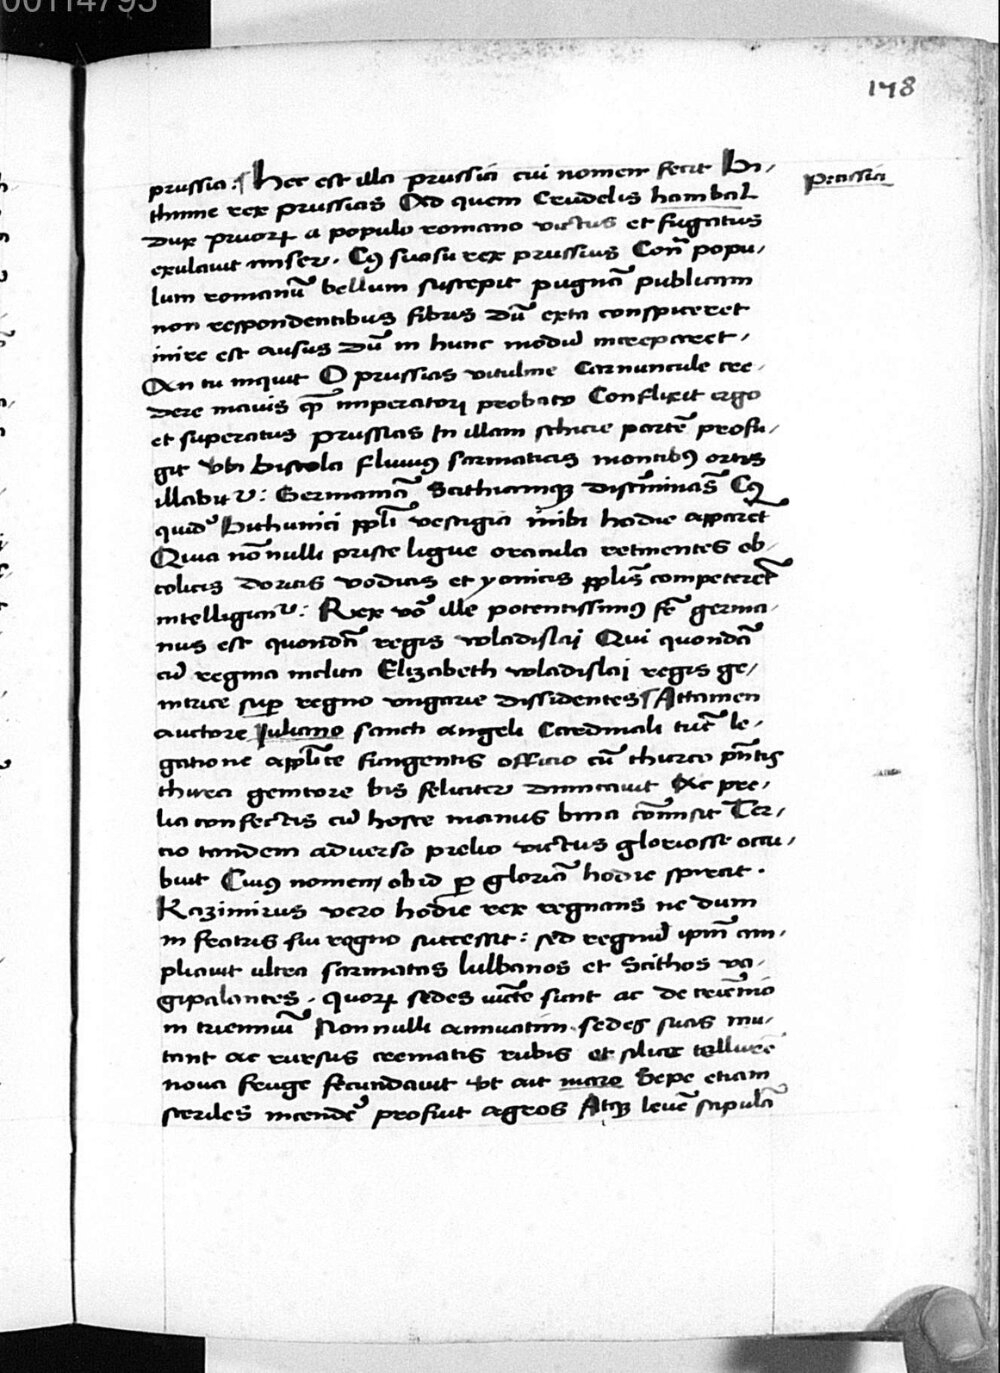 00114795
178
prussia: Hec est illa prussia cui nomen fecit Bi-
Prussia
thinie rex prussias Ad quem Crudelis hanibal
dux penorꝝ a populo romano victus et fugatus
exulavit miser. Cꝰ suosu rex prussius Cont̃ popu-
lum romanũ bellum suscepit pugnã publicam
non respondentibus fibris dũ exta conspiceret
inire est ausus dũ in hunc modũ increparet.
An tu inquit O prussias vitulme Carnuncule cre-
dere mavis q̃ imperatori probato Conflixit ergo
et superatus prussias In illam scitie partẽ profu-
git vbi Biscola fluvius sarmaticis montibꝰ ortus
illabitur: Germaniã Scithiamqꝫ discriminãs Cꝰ
quidẽ Bithunici ppl̃i vestigia inibi hodie apparẽt
Quia nõnulli prisce ligue oracula retinentes eb-
eolicis doricis vodicis et yonicis ppl̃is competerẽt
intelliguntur: Rex vo᷑ ille potentissimꝰ fr̃ germa-
nus est quondã regis wladislaj Qui quondã
cũ regina inclita Elizabeth wladislaj regis ge-
nitrice sup regno vngarie dissidentes Attamen
auctore Juliano sancti angeli Cardinali tũc le-
gatione aplice fungentis officio cũ thurco pñtis
thurci genitore bis feliciter dimicavit Ac pre-
lia confectis cũ hoste manus bina cõmisit Ter-
cio tandem adverso prelio victus gloriosse occu-
buit Cuiꝰ nomen obid p gloriã hodie spirat.
Kazimirus vero hodie rex regnans ne dum
in fratris sui regno successit: sed regnũ ipm̃ am-
pliavit ultra sarmatas lulbanos et Scithos va-
gipalantes. quorꝝ sedes iũcte sunt ac de trieñio
in trienniũ Nonnulli annuatim sedes suas mu-
tant ac rursus crematis rubis et silice tellurẽ
nova fruge fecundavit vt ait maro Sepe etiam
steriles incendẽ profiut agros Atqꝫ levẽ stipulã